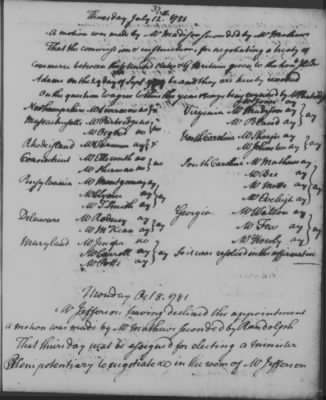 Thursday July 12th 1781
A motion was made by Mr Madison seconded by Mr Mathews
That the commission & instructions for negotiating a treaty of
commerce between these United States & G Britain given to the honble John
Adams on the 29 day of Sept 1779 be and they are hereby revoked
On the question to agree to this the yeas & nays being required by Mr
New hampshire Mr Livermore ay
Massachusetts Mr Partridge
Mr Osgood no
Rhode island Mr Varnum ay
Connecticut Mr Ellsworth no
Mr Sherman no
Pensylvania Mr Montgomery ay
Mr Clymer ay
Mr T Smith ay
Delaware Mr Rodney ay
Mr McKean ay
Maryland Mr Jenifer no
Mr Carroll ay
Mr Potts ay
Virginia Mr Jones ay
Mr Madison ay
Mr Bland ay
North Carolina Mr Sharpe ay
Mr Johnston ay
South Carolina Mr Mathews ay
Mr Bee ay
Mr Motte ay
Mr Eveleigh ay
Georgia Mr Walton ay
Mr Few ay
Mr Howly ay
So it was resolved in the affirmative
Monday Oct 8. 1781
Mr Jefferson having declined this appointment
a motion was made by Mr Mathews seconded by Mr Randolph
That thursday next be assigned for electing a minister
Plenipotentiary to negotiate &c in the room of Mr Jefferson